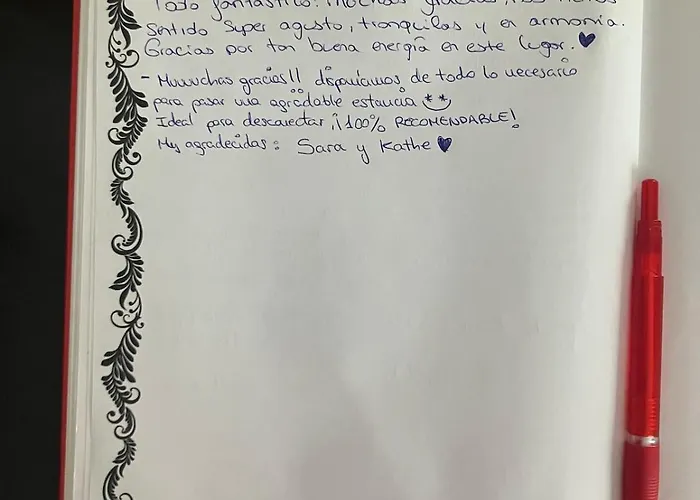 Todo fantástico! Muchas gracias, nos hemos
sentido super agusto, tranquilas y en armonía.
Gracias por tan buena energía en este lugar. ♥
- Muuuchas gracias!! disponíamos de todo lo necesario
para pasar una agradable estancia
Ideal para desconectar ¡¡100% RECOMENDABLE!
Muy agradecidas: Sara y Kathe ♥